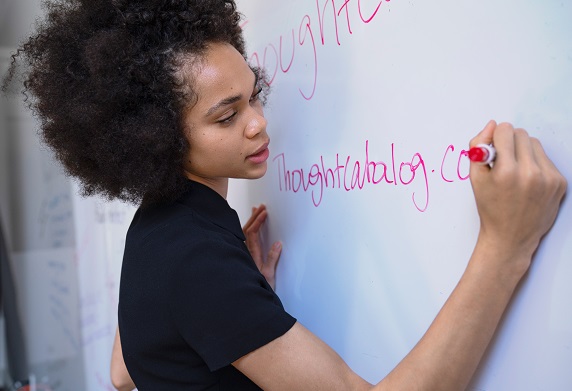 ThoughtC
ThoughtCatalog.co